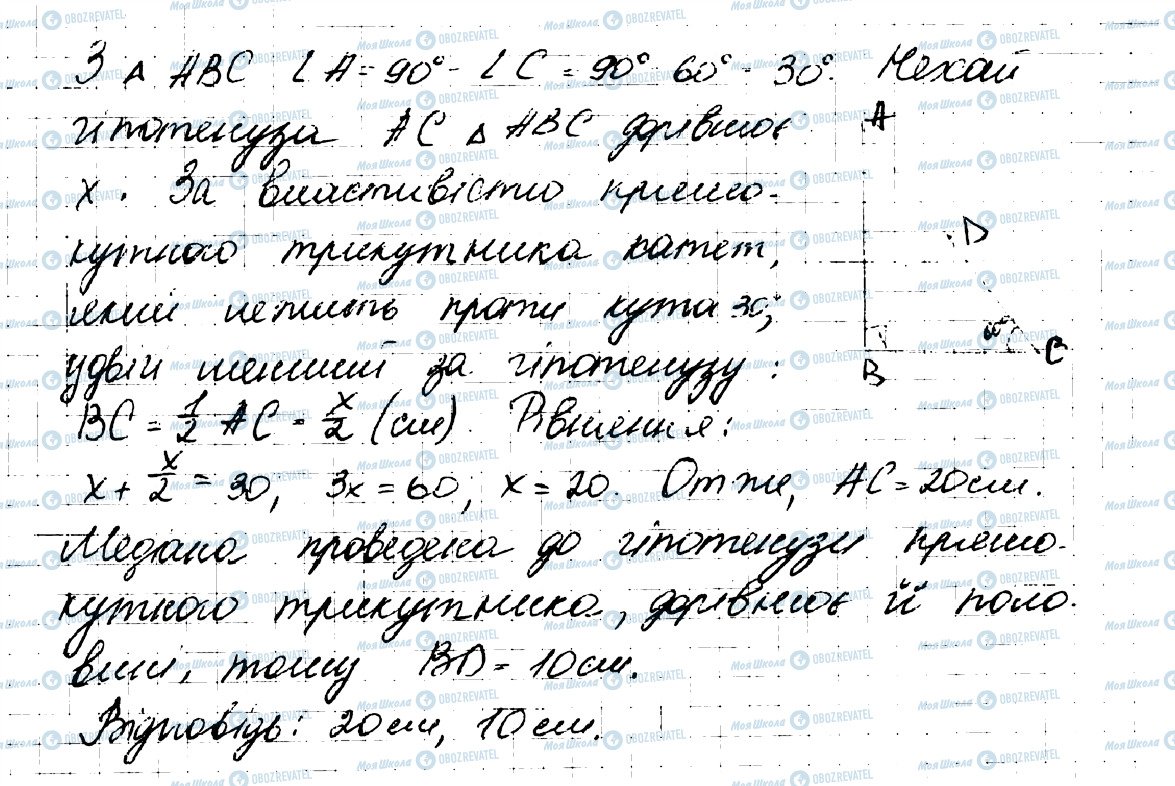 З △ ABC ∠A = 90° - ∠C = 90° 60° = 30°. Нехай
гіпотенуза AC △ ABC дорівнює
x. За властивістю прямо-
кутного трикутника катет,
який лежить проти кута 30°,
удвічі менший за гіпотенузу:
BC = 1/2 AC = x/2 (см). Рівняння:
x + x/2 = 30, 3x = 60, x = 20. Отже, AC = 20 см.
Медіана проведена до гіпотенузи прямо-
кутного трикутника, дорівнює її поло-
вині, тому BD = 10 см.
Відповідь: 20 см, 10 см.
A
D
60°
B
C
Моя Школа OBOZREVATEL